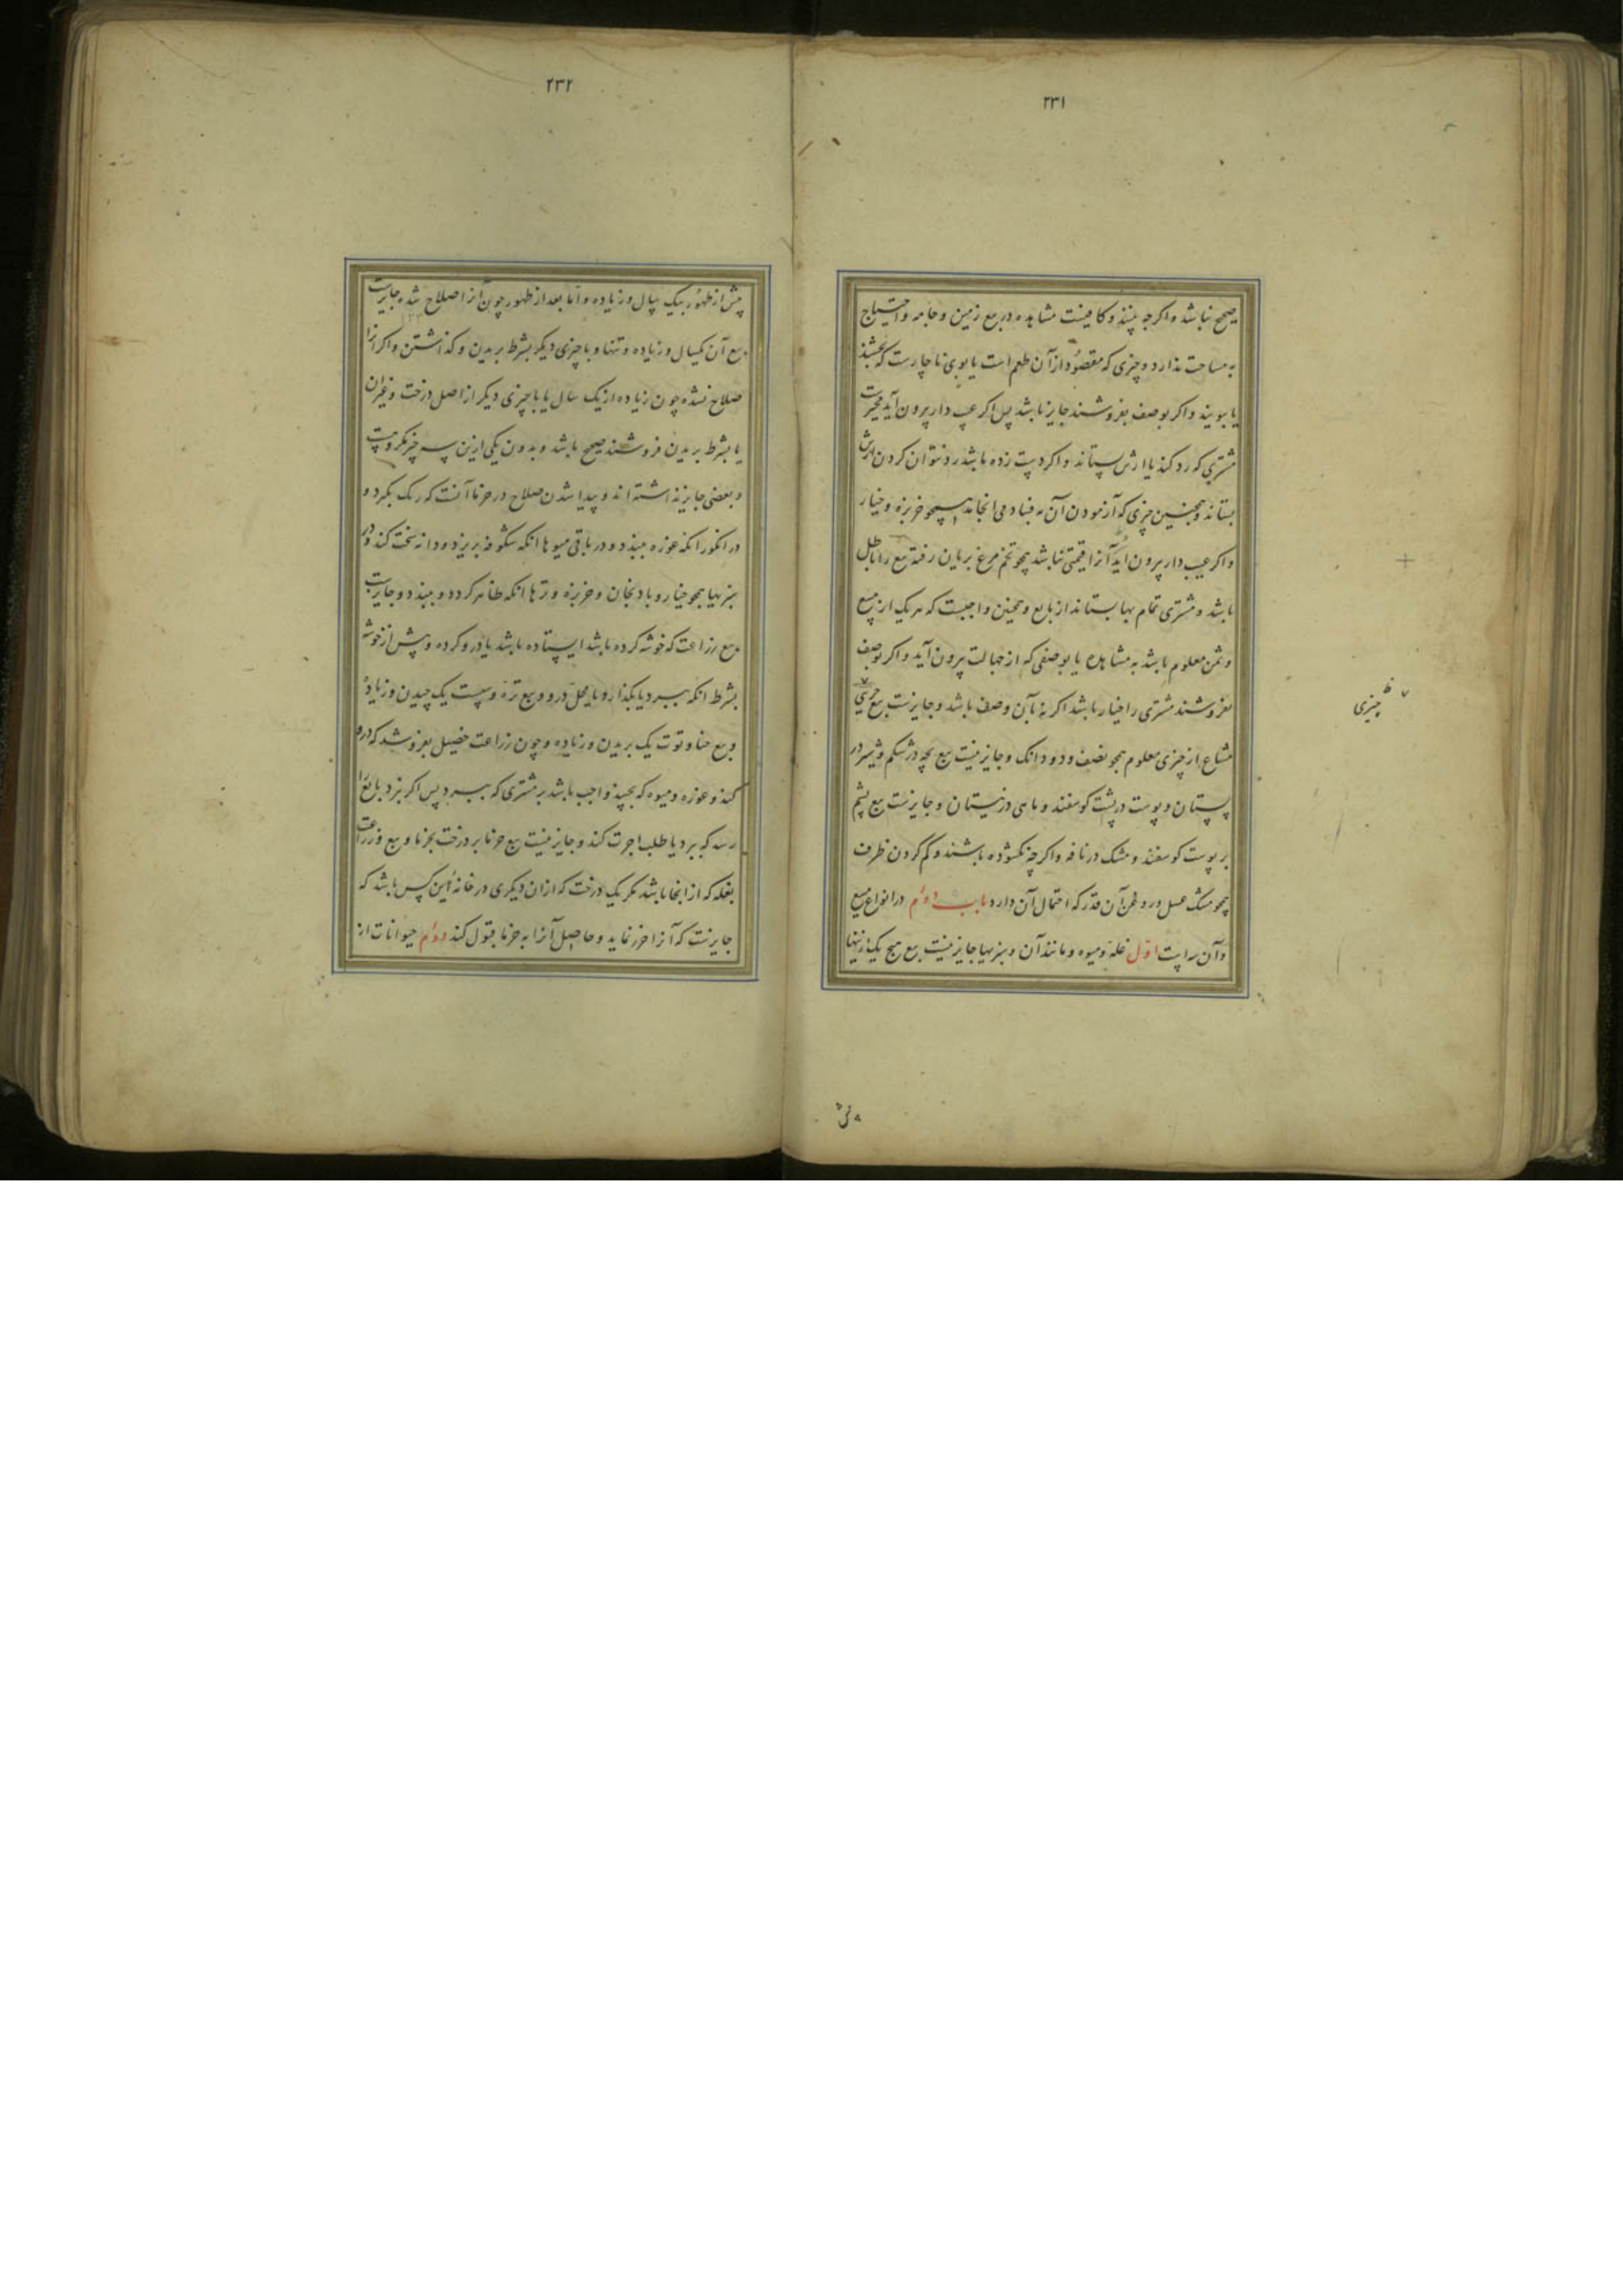 ۲۳۱
صحیح نباشد واکرچه بینند وکافیست مشاهده در بیع زمین وجامه واحتیاج
به مساحت ندارد وچیزی که مقصود از آن طعم است یا بوی ناچارست که بچشند
یا ببویند واکر بوصف بفروشند جایز باشد پس اکر عیب دار برون آید مخیرست
مشتری که رد کند یا ارش بستاند واکر دست زده باشد رد نتوان کردن ارش
بستاند وهمچنین چیزی که آزمودن آن به فساد می انجامد همچو خربزه وخیار
واکر عیب دار برون آید آنرا قیمتی نباشد همچو تخم مرغ بریان رفته بیع را باطل
باشد ومشتری تمام بها بستاند از بایع وهمچنین واجبست که هر یک از مبیع
وثمن معلوم باشد به مشاهده یا بوصفی که از جهالت برون آید واکر بوصف
بفروشند مشتری را خیار باشد اکر نه بآن وصف باشد وجایزست بیع جزئی
مشاع از چیزی معلوم همچو نصف ودو دانک وجایز نیست بیع بچه در شکم وشیر در
پستان وپوست در پشت کوسفند وماهی در نیستان وجایزست بیع پشم
بر پوست کوسفند ومشک در نافه واکرچه نکشوده باشند وکم کردن ظرف
همچو مشک عسل وروغن آن قدر که احتمال آن دارد باب دوم در انواع مبیع
وآن سه است اول غله ومیوه ومانند آن وسبزیها جایز نیست بیع هیچ یک ازینها
۷ ظ چیزی
۲۳۲
پیش از ظهور بیک سال وزیاده واما بعد از ظهور چون آنرا صلاح شده جایزست
بیع آن یکسال وزیاده وتنها وبا چیزی دیکر بشرط بریدن وکذاشتن واکر آنرا
صلاح نشده چون زیاده از یک سال یا با چیزی دیکر از اصل درخت وغیر آن
یا بشرط بریدن فروشند صحیح باشد وبدون یکی ازین سه چیز مکروهست
وبعضی جایز نداشته اند وپیدا شدن صلاح در خرما آنست که رنک بکیرد و
در انکور انکه غوزه ببندد ودر باقی میوها انکه شکوفه بریزد ودانه سخت کند ودر
سبزیها همچو خیار وبادنجان وخربزه وترها انکه ظاهر کردد وببندد وجایزست
بیع زراعت که خوشه کرده باشد ایستاده باشد یا درو کرده وپیش از خوشه
بشرط انکه ببرد یا بکذارد تا محل درو وبیع تره وسپست یک چیدن وزیاده
وبیع حنا وتوت یک بریدن وزیاده وچون زراعت خصیل بفروشد که درو
کند وغوزه ومیوه که بچیند واجب باشد بر مشتری که ببرد پس اکر نبرد بایع را
رسد که ببرد یا طلب اجرت کند وجایز نیست بیع خرما بر درخت بخرما وبیع زراعت
بغله که از انجا باشد مکر یک درخت که ازان دیکری در خانه این کس باشد که
جایزست که آنرا خرز نماید وحاصل آنرا به خرما قبول کند دوم حیوانات از